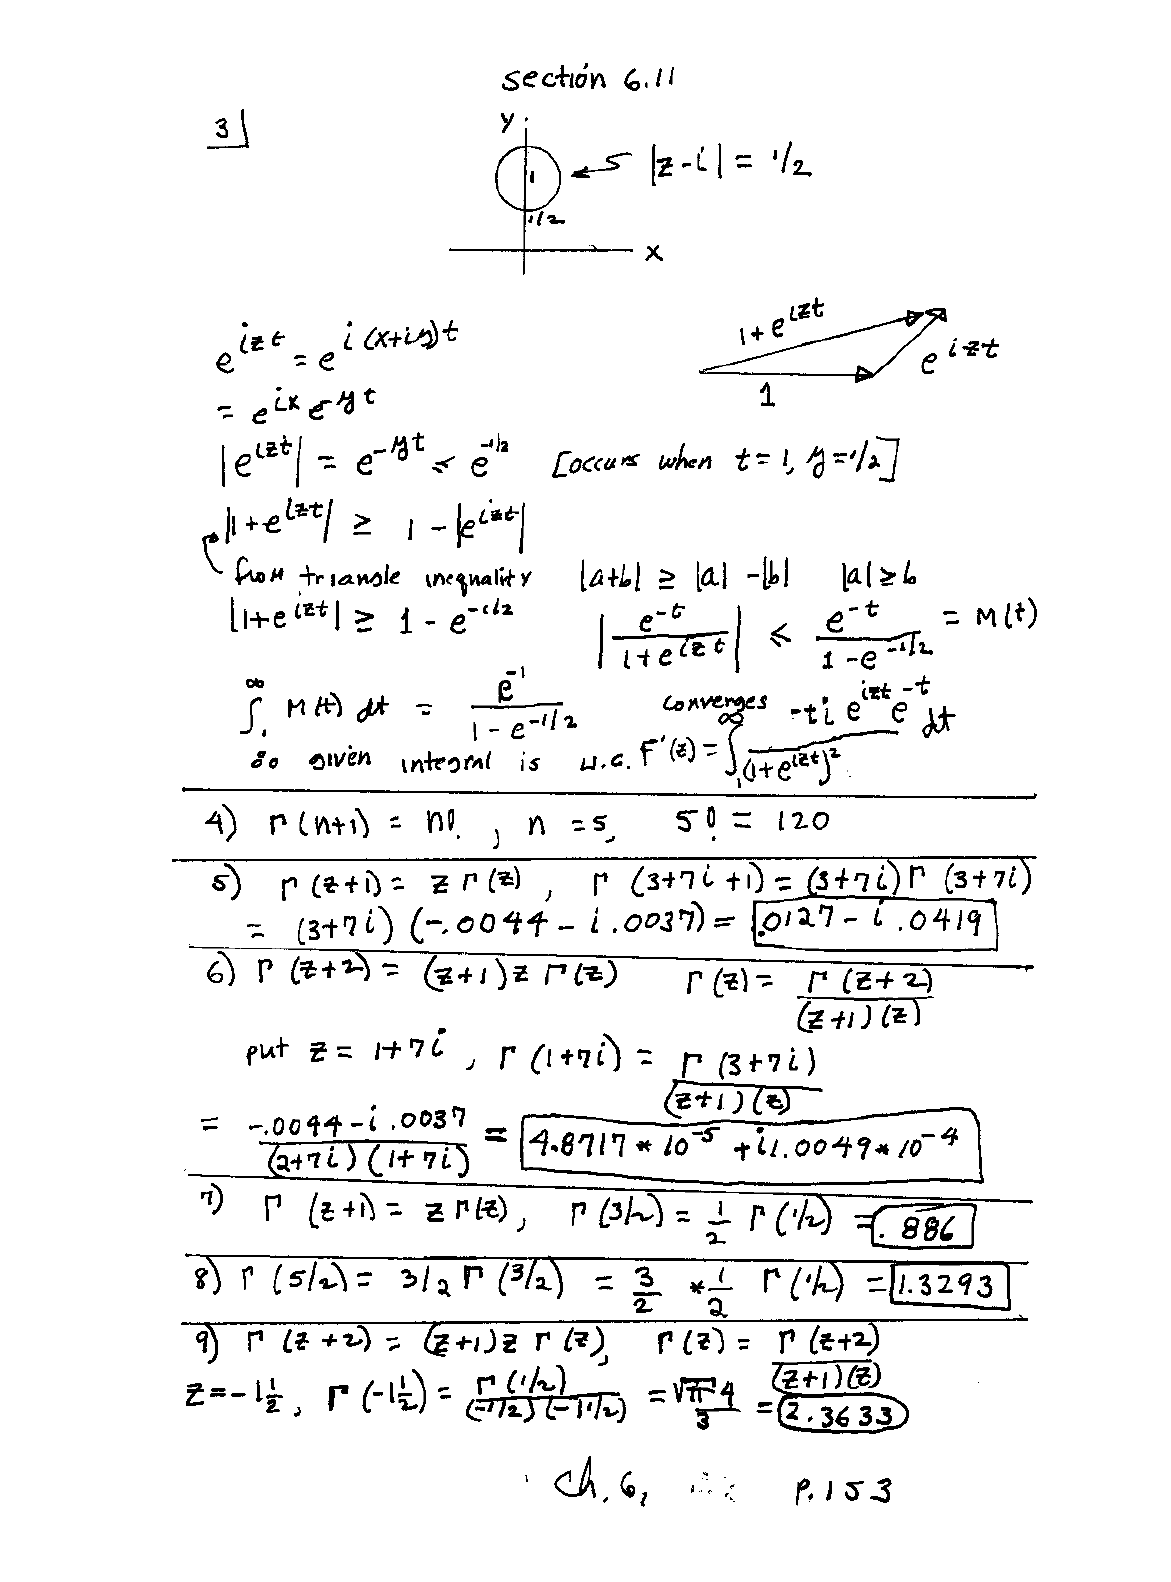 section 6.11
3
y
|z-i| = 1/2
1
1/2
x
e^{izt} = e^{i(x+iy)t}
1+e^{izt}
e^{izt}
1
= e^{ix} e^{-yt}
|e^{izt}| = e^{-yt} ≤ e^{-1/2} [occurs when t=1, y=1/2]
|1+e^{izt}| ≥ 1 - |e^{izt}|
from triangle inequality |a+b| ≥ |a| - |b| |a| ≥ b
|1+e^{izt}| ≥ 1 - e^{-1/2} |e^{-t}/(1+e^{izt})| ≤ e^{-t}/(1-e^{-1/2}) = M(t)
∫_1^∞ M(t) dt = e^{-1}/(1-e^{-1/2}) converges
so given integral is u.c. F'(z) = ∫_1^∞ -ti e^{izt} e^{-t}/(1+e^{izt})^2 dt
4) Γ(n+1) = n! , n = 5, 5! = 120
5) Γ(z+1) = z Γ(z) , Γ(3+7i+1) = (3+7i) Γ(3+7i)
= (3+7i) (-.0044 - i .0037) = .0127 - i .0419
6) Γ(z+2) = (z+1) z Γ(z) Γ(z) = Γ(z+2)/(z+1)(z)
put z = 1+7i , Γ(1+7i) = Γ(3+7i)/(z+1)(z)
= -.0044 - i .0037/(2+7i)(1+7i) = 4.8717 * 10^{-5} + i1.0049 * 10^{-4}
7) Γ(z+1) = z Γ(z), Γ(3/2) = 1/2 Γ(1/2) = .886
8) Γ(5/2) = 3/2 Γ(3/2) = 3/2 * 1/2 Γ(1/2) = 1.3293
9) Γ(z+2) = (z+1) z Γ(z), Γ(z) = Γ(z+2)/(z+1)(z)
z = -1 1/2, Γ(-1 1/2) = Γ(1/2)/(-1/2)(-1 1/2) = √π 4/3 = 2.3633
ch. 6, p. 153